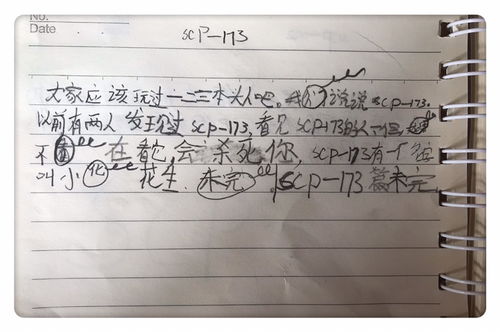 No.
Date
SCP-173
大家应该玩过一二三木头人吧。我们说说SCP-173.
以前有两人发现过SCP-173,看见SCP173的人一但
不 在看它,会杀死你,SCP-173有个名
叫小 花生。未完。SCP-173篇未完